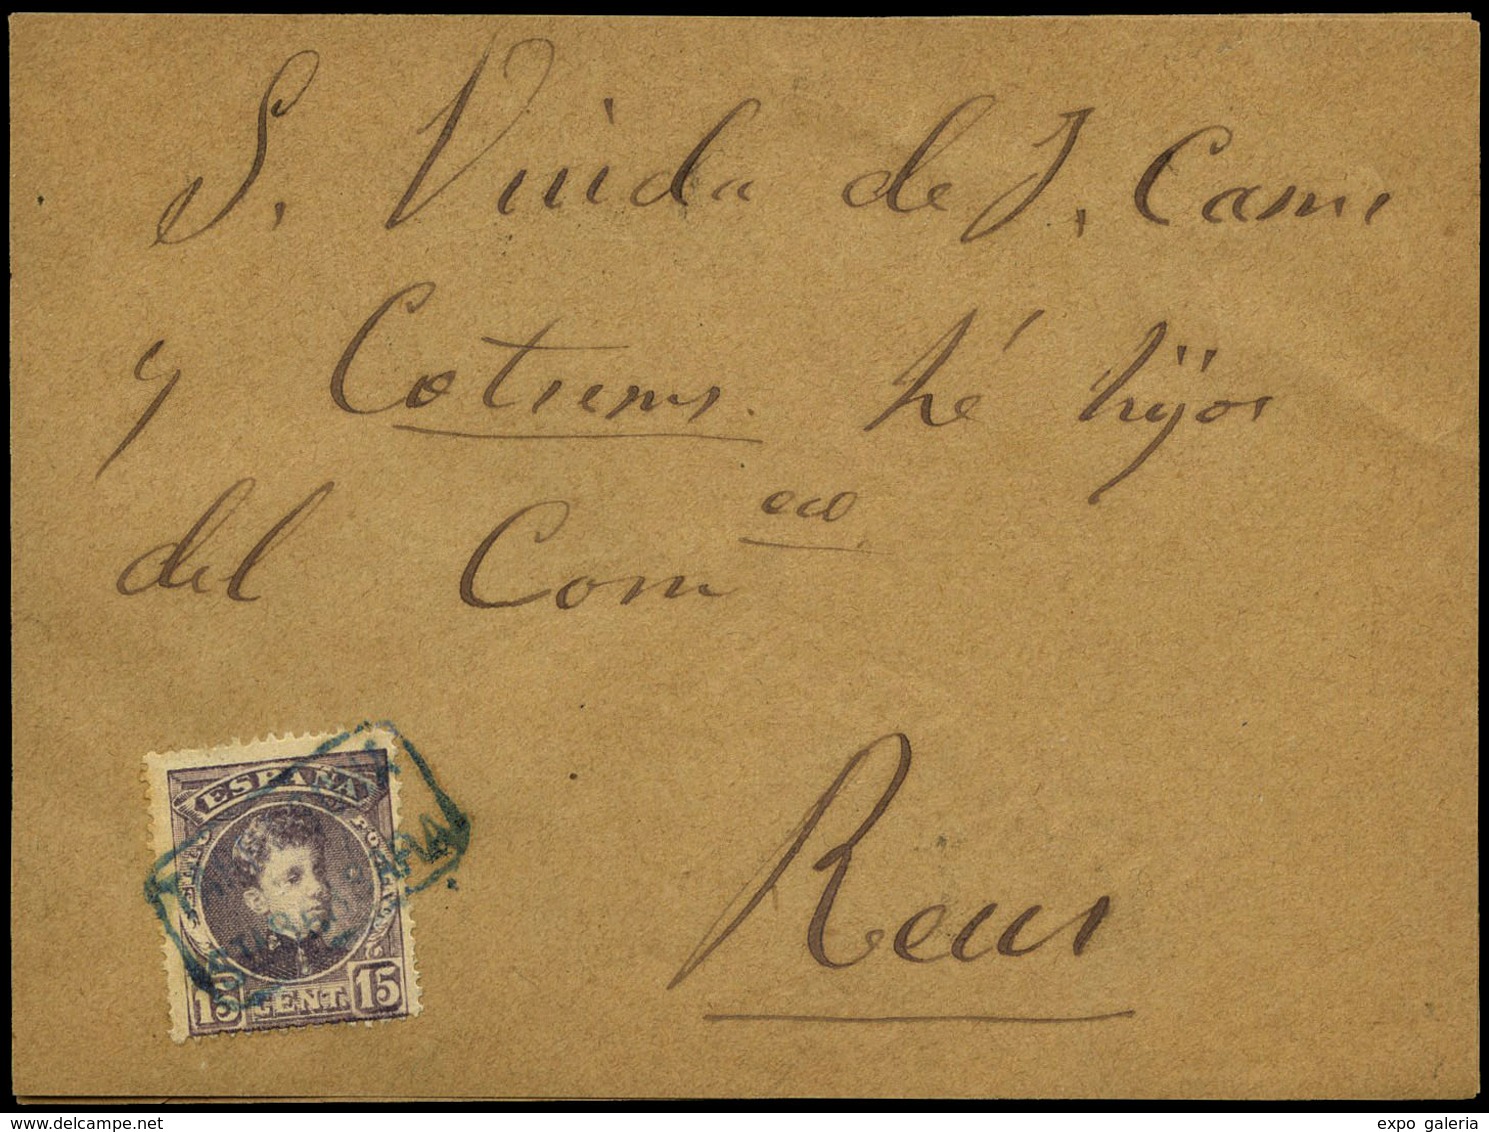 S. Viuda de J. Casas
y Cotrems. hé hijos
del Com eco
Reus
ESPAÑA
15 CENT. 15
delcampe.net
expo galeria